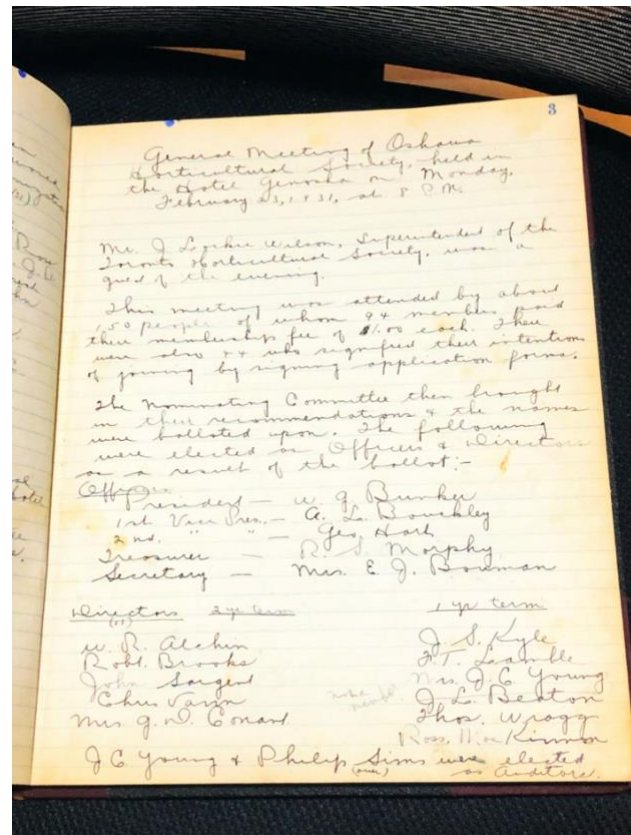 3
General Meeting of Oshawa
Horticultural Society, held in
the Hotel Genosha on Monday,
February 23, 1931, at 8 P.M.
Mr. J. Lockie Wilson, Superintendent of the
Toronto Horticultural Society, was a
guest of the evening.
This meeting was attended by about
150 people of whom 94 members paid
their membership fee of $1.00 each. There
were also 44 who signified their intentions
of joining by signing application forms.
The Nominating Committee then brought
in their recommendations & the names
were balloted upon. The following
were elected as Officers & Directors
as a result of the ballot:-
Officers
President — W. G. Bunker
1st Vice Pres. — A. L. Bouckley
2nd. " " — Geo. Hart
Treasurer — R. S. Morphy
Secretary — Mrs. E. J. Bowman
Directors 2 yr term 1 yr term
W. R. Alchin J. S. Kyle
Robt. Brooks F. T. Lamble
John Sargent Mrs. J. C Young
Chris Vann J. L. Beaton
Mrs G. D. Conant Thos. Wragg
Ross MacKinnon
J C Young & Philip Sims were elected
as Auditors.